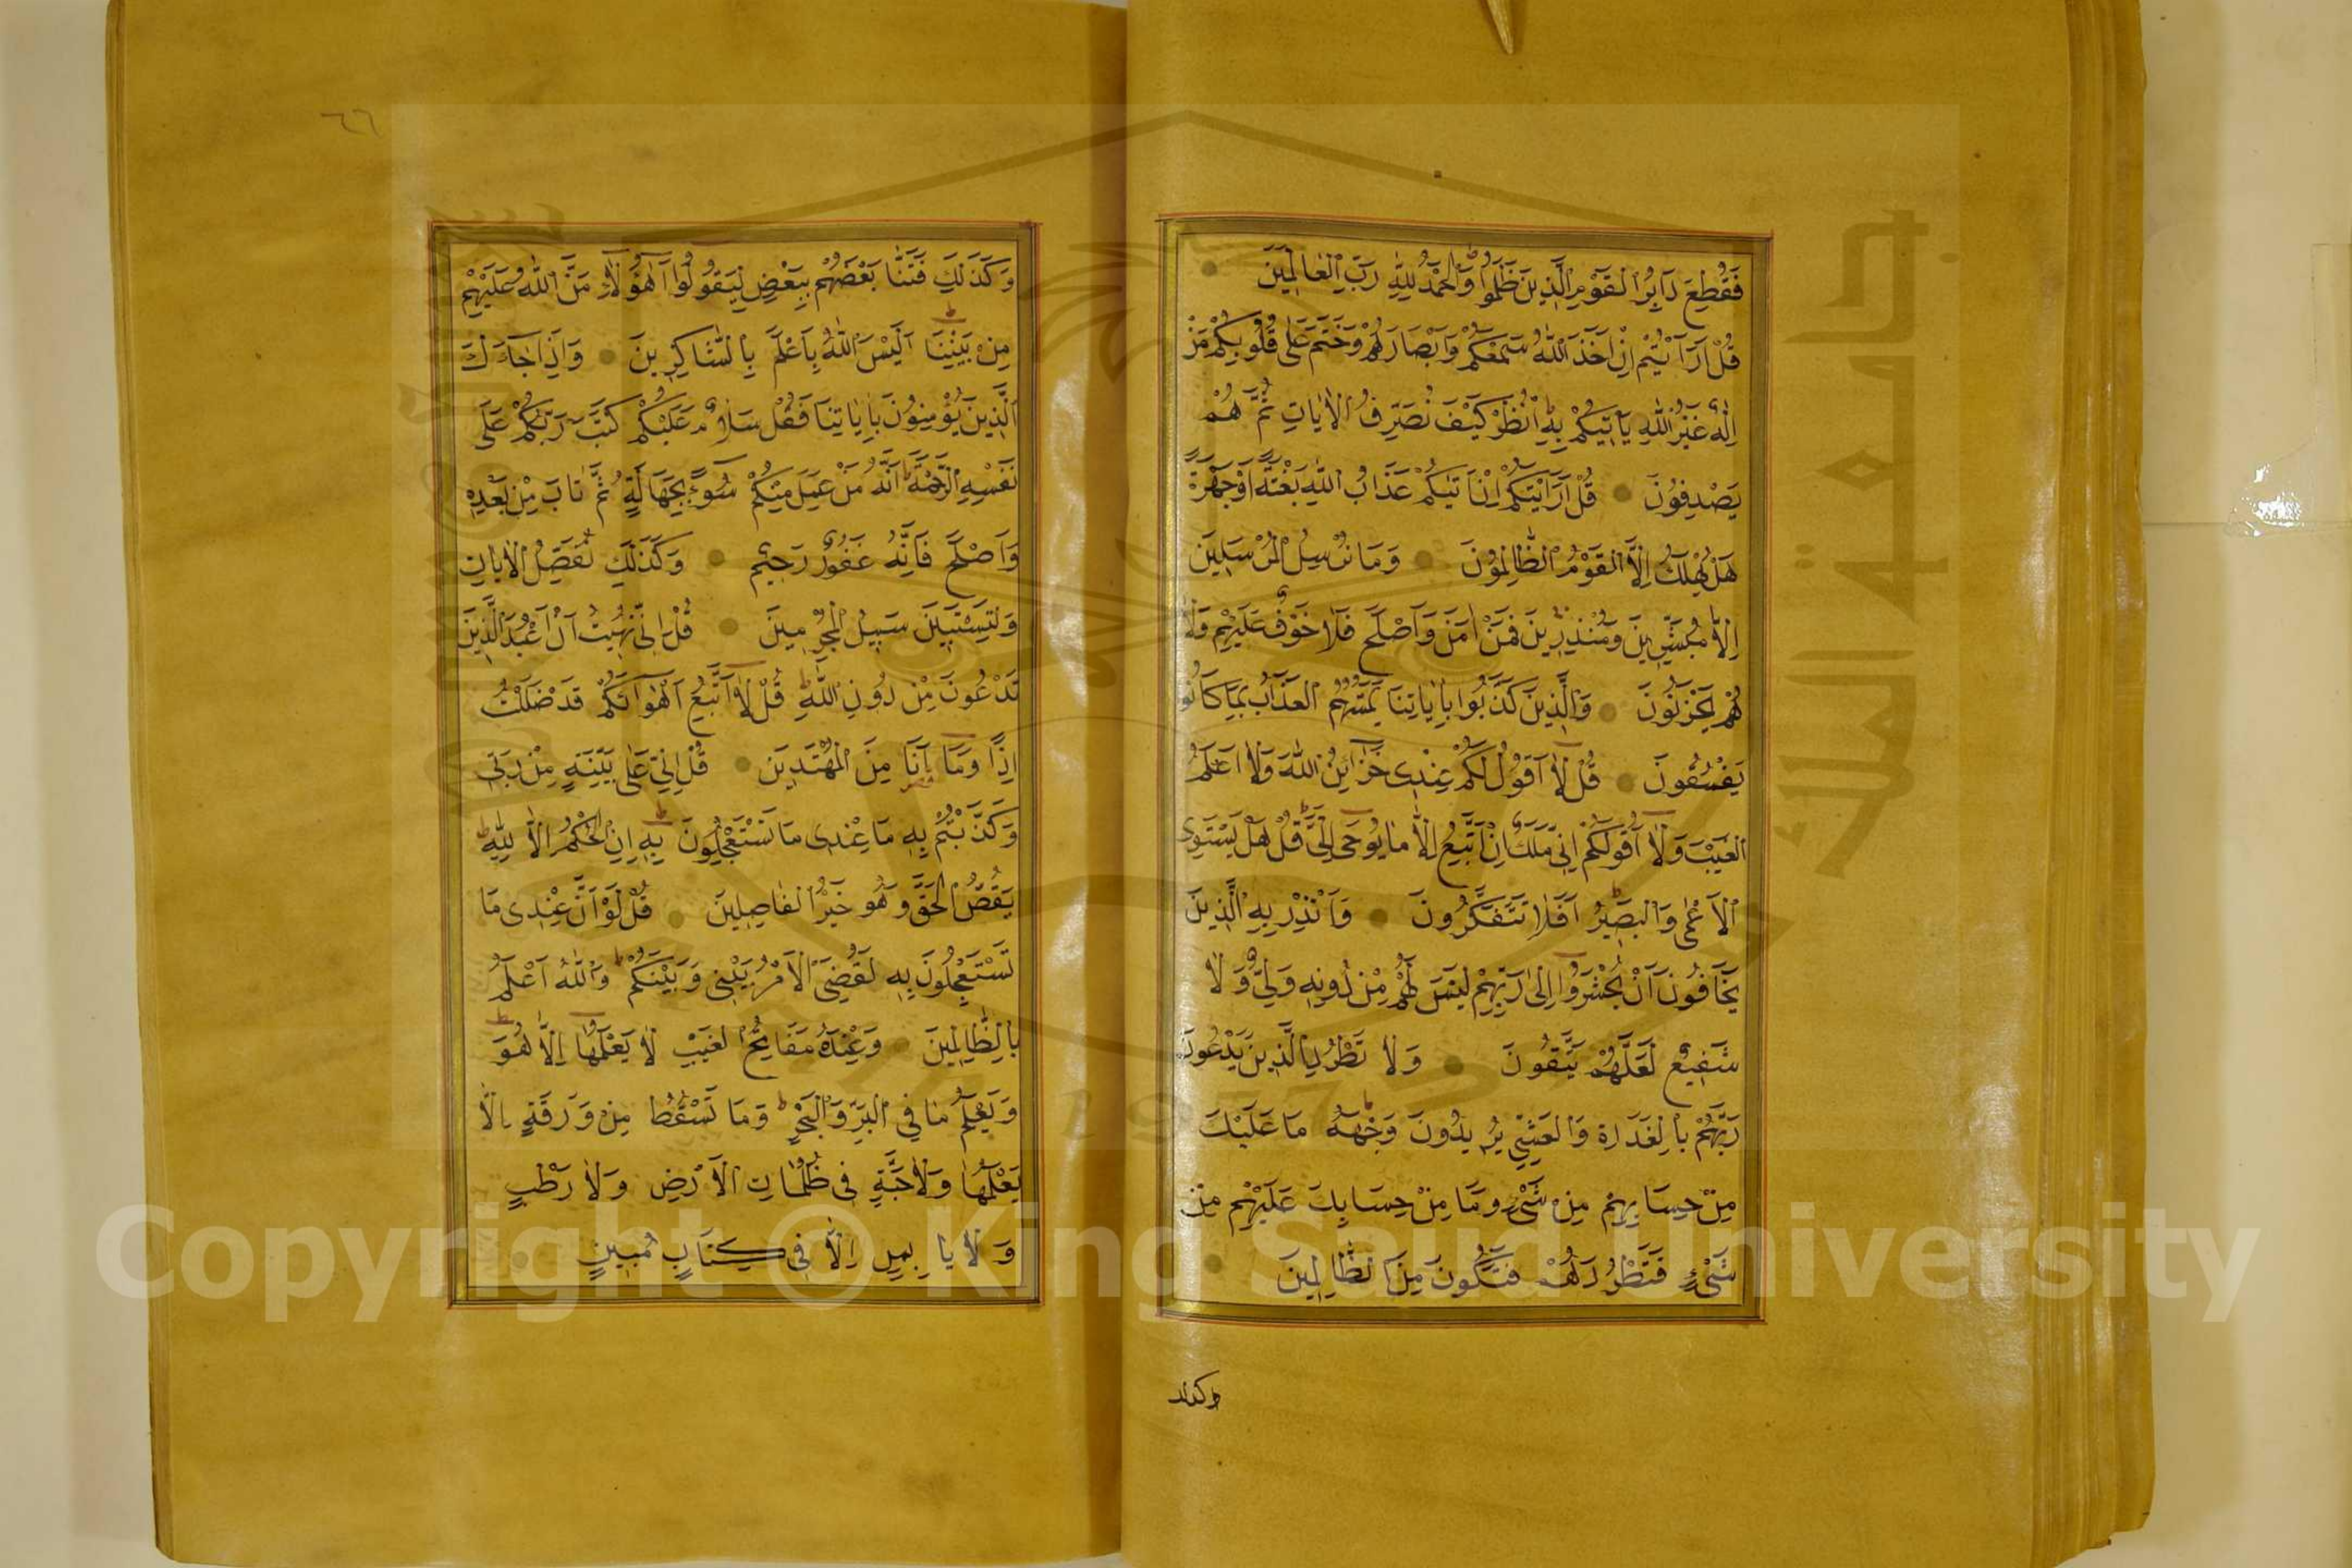 فَقُطِعَ دَابِرُ الْقَوْمِ الَّذِينَ ظَلَمُوا وَالْحَمْدُ لِلَّهِ رَبِّ الْعَالَمِينَ
قُلْ اَرَاَيْتُمْ اِنْ اَخَذَ اللّٰهُ سَمْعَكُمْ وَاَبْصَارَكُمْ وَخَتَمَ عَلٰى قُلُوبِكُمْ مَنْ
اِلٰهٌ غَيْرُ اللّٰهِ يَاْتِيكُمْ بِهِ اُنْظُرْ كَيْفَ نُصَرِّفُ الْاٰيَاتِ ثُمَّ هُمْ
يَصْدِفُونَ قُلْ اَرَاَيْتَكُمْ اِنْ اَتٰيكُمْ عَذَابُ اللّٰهِ بَغْتَةً اَوْ جَهْرَةً
هَلْ يُهْلَكُ اِلَّا الْقَوْمُ الظَّالِمُونَ وَمَا نُرْسِلُ الْمُرْسَلِينَ
اِلَّا مُبَشِّرِينَ وَمُنْذِرِينَ فَمَنْ اٰمَنَ وَاَصْلَحَ فَلَا خَوْفٌ عَلَيْهِمْ وَلَا
هُمْ يَحْزَنُونَ وَالَّذِينَ كَذَّبُوا بِاٰيَاتِنَا يَمَسُّهُمُ الْعَذَابُ بِمَا كَانُوا
يَفْسُقُونَ قُلْ لَا اَقُولُ لَكُمْ عِنْدِى خَزَائِنُ اللّٰهِ وَلَا اَعْلَمُ
الْغَيْبَ وَلَا اَقُولُ لَكُمْ اِنِّى مَلَكٌ اِنْ اَتَّبِعُ اِلَّا مَا يُوحٰى اِلَىَّ قُلْ هَلْ يَسْتَوِى
الْاَعْمٰى وَالْبَصِيرُ اَفَلَا تَتَفَكَّرُونَ وَاَنْذِرْ بِهِ الَّذِينَ
يَخَافُونَ اَنْ يُحْشَرُوا اِلٰى رَبِّهِمْ لَيْسَ لَهُمْ مِنْ دُونِهِ وَلِىٌّ وَلَا
شَفِيعٌ لَعَلَّهُمْ يَتَّقُونَ وَلَا تَطْرُدِ الَّذِينَ يَدْعُونَ
رَبَّهُمْ بِالْغَدَاةِ وَالْعَشِىِّ يُرِيدُونَ وَجْهَهُ مَا عَلَيْكَ
مِنْ حِسَابِهِمْ مِنْ شَىْءٍ وَمَا مِنْ حِسَابِكَ عَلَيْهِمْ مِنْ
شَىْءٍ فَتَطْرُدَهُمْ فَتَكُونَ مِنَ الظَّالِمِينَ
وكذلك
٦٦
وَكَذٰلِكَ فَتَنَّا بَعْضَهُمْ بِبَعْضٍ لِيَقُولُوا اَهٰؤُلَاءِ مَنَّ اللّٰهُ عَلَيْهِمْ
مِنْ بَيْنِنَا اَلَيْسَ اللّٰهُ بِاَعْلَمَ بِالشَّاكِرِينَ وَاِذَا جَاءَكَ
الَّذِينَ يُؤْمِنُونَ بِاٰيَاتِنَا فَقُلْ سَلَامٌ عَلَيْكُمْ كَتَبَ رَبُّكُمْ عَلٰى
نَفْسِهِ الرَّحْمَةَ اَنَّهُ مَنْ عَمِلَ مِنْكُمْ سُوءًا بِجَهَالَةٍ ثُمَّ تَابَ مِنْ بَعْدِهِ
وَاَصْلَحَ فَاَنَّهُ غَفُورٌ رَحِيمٌ وَكَذٰلِكَ نُفَصِّلُ الْاٰيَاتِ
وَلِتَسْتَبِينَ سَبِيلُ الْمُجْرِمِينَ قُلْ اِنِّى نُهِيتُ اَنْ اَعْبُدَ الَّذِينَ
تَدْعُونَ مِنْ دُونِ اللّٰهِ قُلْ لَا اَتَّبِعُ اَهْوَاءَكُمْ قَدْ ضَلَلْتُ
اِذًا وَمَا اَنَا مِنَ الْمُهْتَدِينَ قُلْ اِنِّى عَلٰى بَيِّنَةٍ مِنْ رَبِّى
وَكَذَّبْتُمْ بِهِ مَا عِنْدِى مَا تَسْتَعْجِلُونَ بِهِ اِنِ الْحُكْمُ اِلَّا لِلّٰهِ
يَقُصُّ الْحَقَّ وَهُوَ خَيْرُ الْفَاصِلِينَ قُلْ لَوْ اَنَّ عِنْدِى مَا
تَسْتَعْجِلُونَ بِهِ لَقُضِىَ الْاَمْرُ بَيْنِى وَبَيْنَكُمْ وَاللّٰهُ اَعْلَمُ
بِالظَّالِمِينَ وَعِنْدَهُ مَفَاتِحُ الْغَيْبِ لَا يَعْلَمُهَا اِلَّا هُوَ
وَيَعْلَمُ مَا فِى الْبَرِّ وَالْبَحْرِ وَمَا تَسْقُطُ مِنْ وَرَقَةٍ اِلَّا
يَعْلَمُهَا وَلَا حَبَّةٍ فِى ظُلُمَاتِ الْاَرْضِ وَلَا رَطْبٍ
وَلَا يَابِسٍ اِلَّا فِى كِتَابٍ مُبِينٍ
Copyright © King Saud University